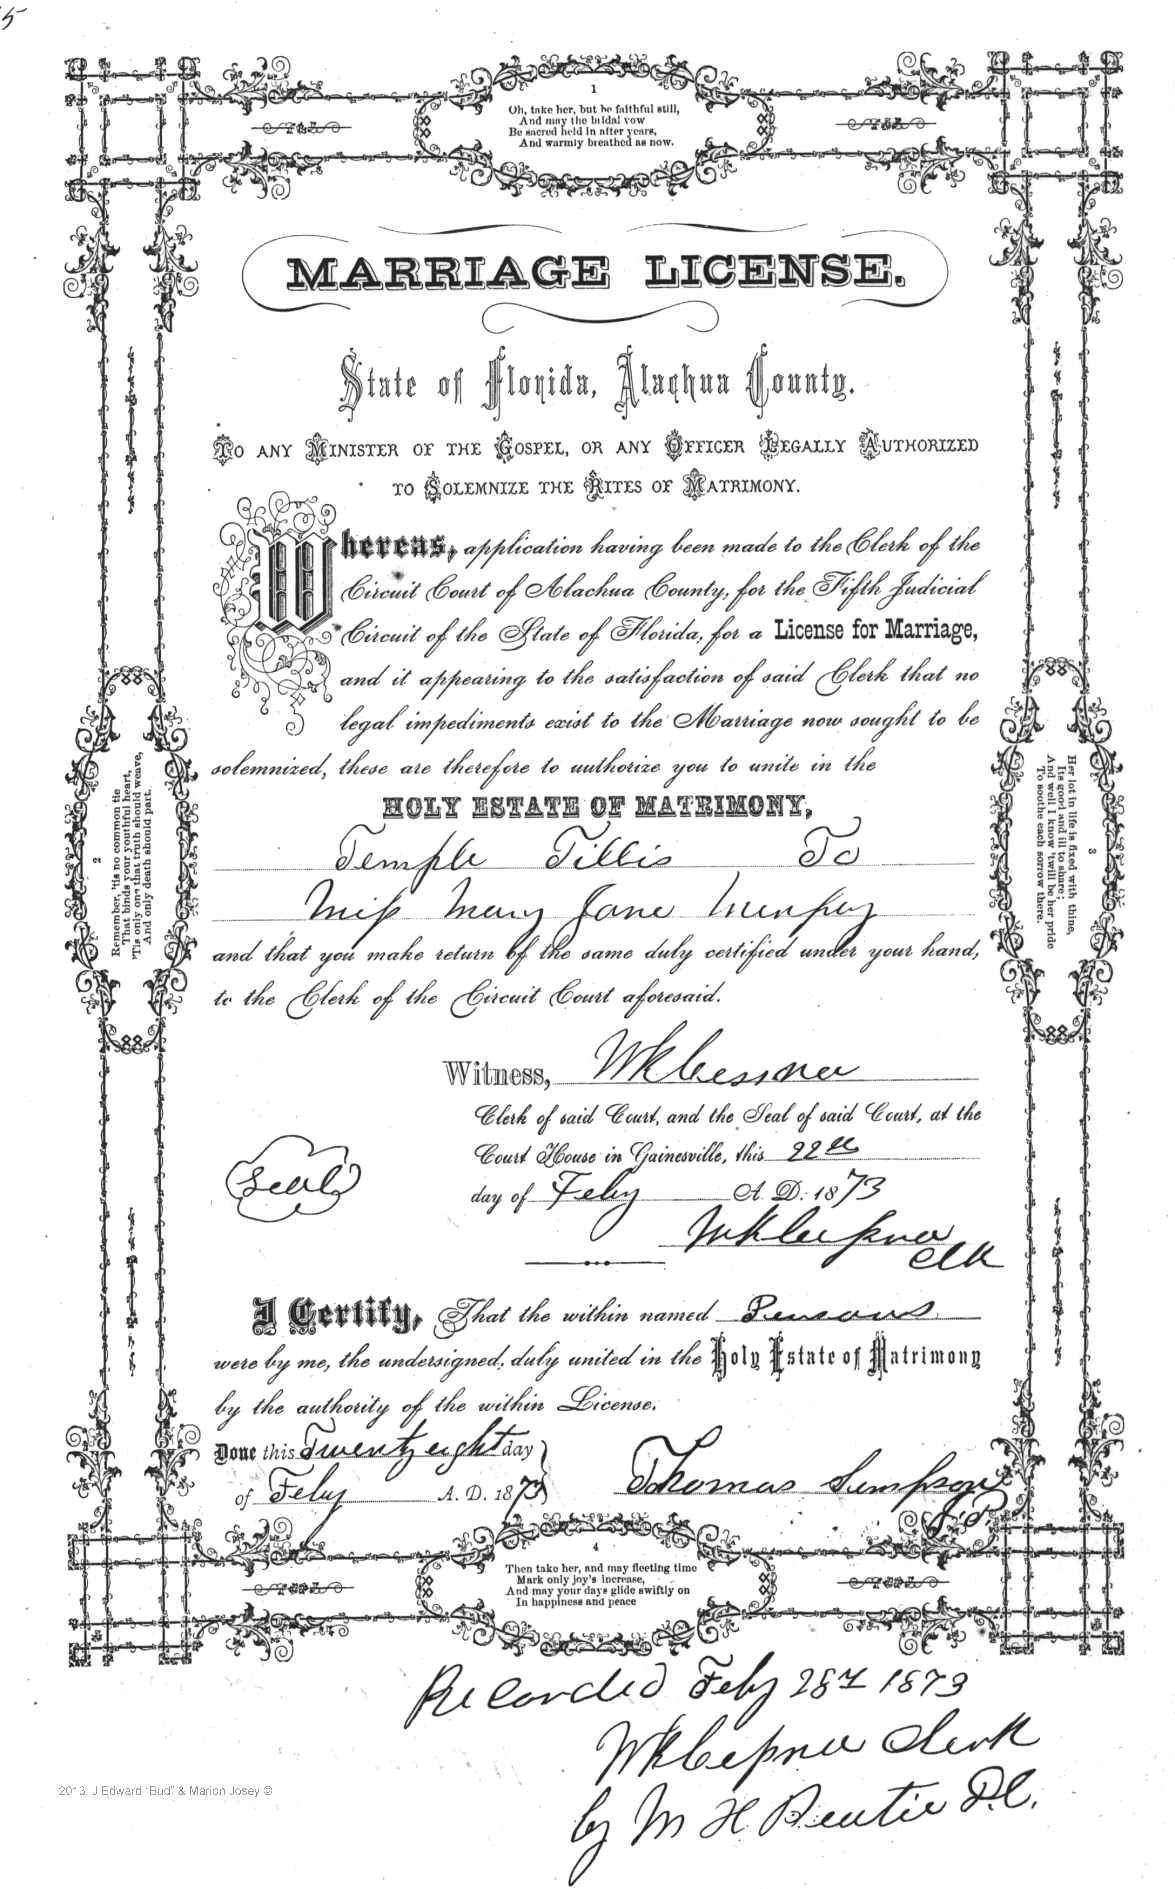 5
1
Oh, take her, but be faithful still,
And may the bridal vow
Be sacred held in after years,
And warmly breathed as now.
MARRIAGE LICENSE.
State of Florida, Alachua County.
TO ANY MINISTER OF THE GOSPEL, OR ANY OFFICER LEGALLY AUTHORIZED
TO SOLEMNIZE THE RITES OF MATRIMONY.
Whereas, application having been made to the Clerk of the
Circuit Court of Alachua County, for the Fifth Judicial
Circuit of the State of Florida, for a License for Marriage,
and it appearing to the satisfaction of said Clerk that no
legal impediments exist to the Marriage now sought to be
solemnized, these are therefore to authorize you to unite in the
HOLY ESTATE OF MATRIMONY,
Temple Tillis To
Miss Mary Jane
and that you make return of the same duly certified under your hand,
to the Clerk of the Circuit Court aforesaid.
Witness, WK Cessna
Clerk of said Court, and the Seal of said Court, at the
Court House in Gainesville, this 22
day of Feby A. D. 1873
Seal
WK Cessna
Clk
I Certify, That the within named Persons
were by me, the undersigned, duly united in the Holy Estate of Matrimony
by the authority of the within License.
Done this Twenty eight day
of Feby A. D. 1873
Thomas Simpson
J.P.
2
Remember, 'tis no common tie
That binds your youthful heart,
'Tis only one that truth should weave,
And only death should part.
3
Her lot in life is fixed with thine,
Its good and ill to share;
And well I know 'twill be her pride
To soothe each sorrow there.
4
Then take her, and may fleeting time
Mark only joy's increase,
And may your days glide swiftly on
In happiness and peace
Recorded Feby 28 1873
WK Cessna Clerk
by M H D.C.
2013. J Edward "Bud" & Marion Josey ©